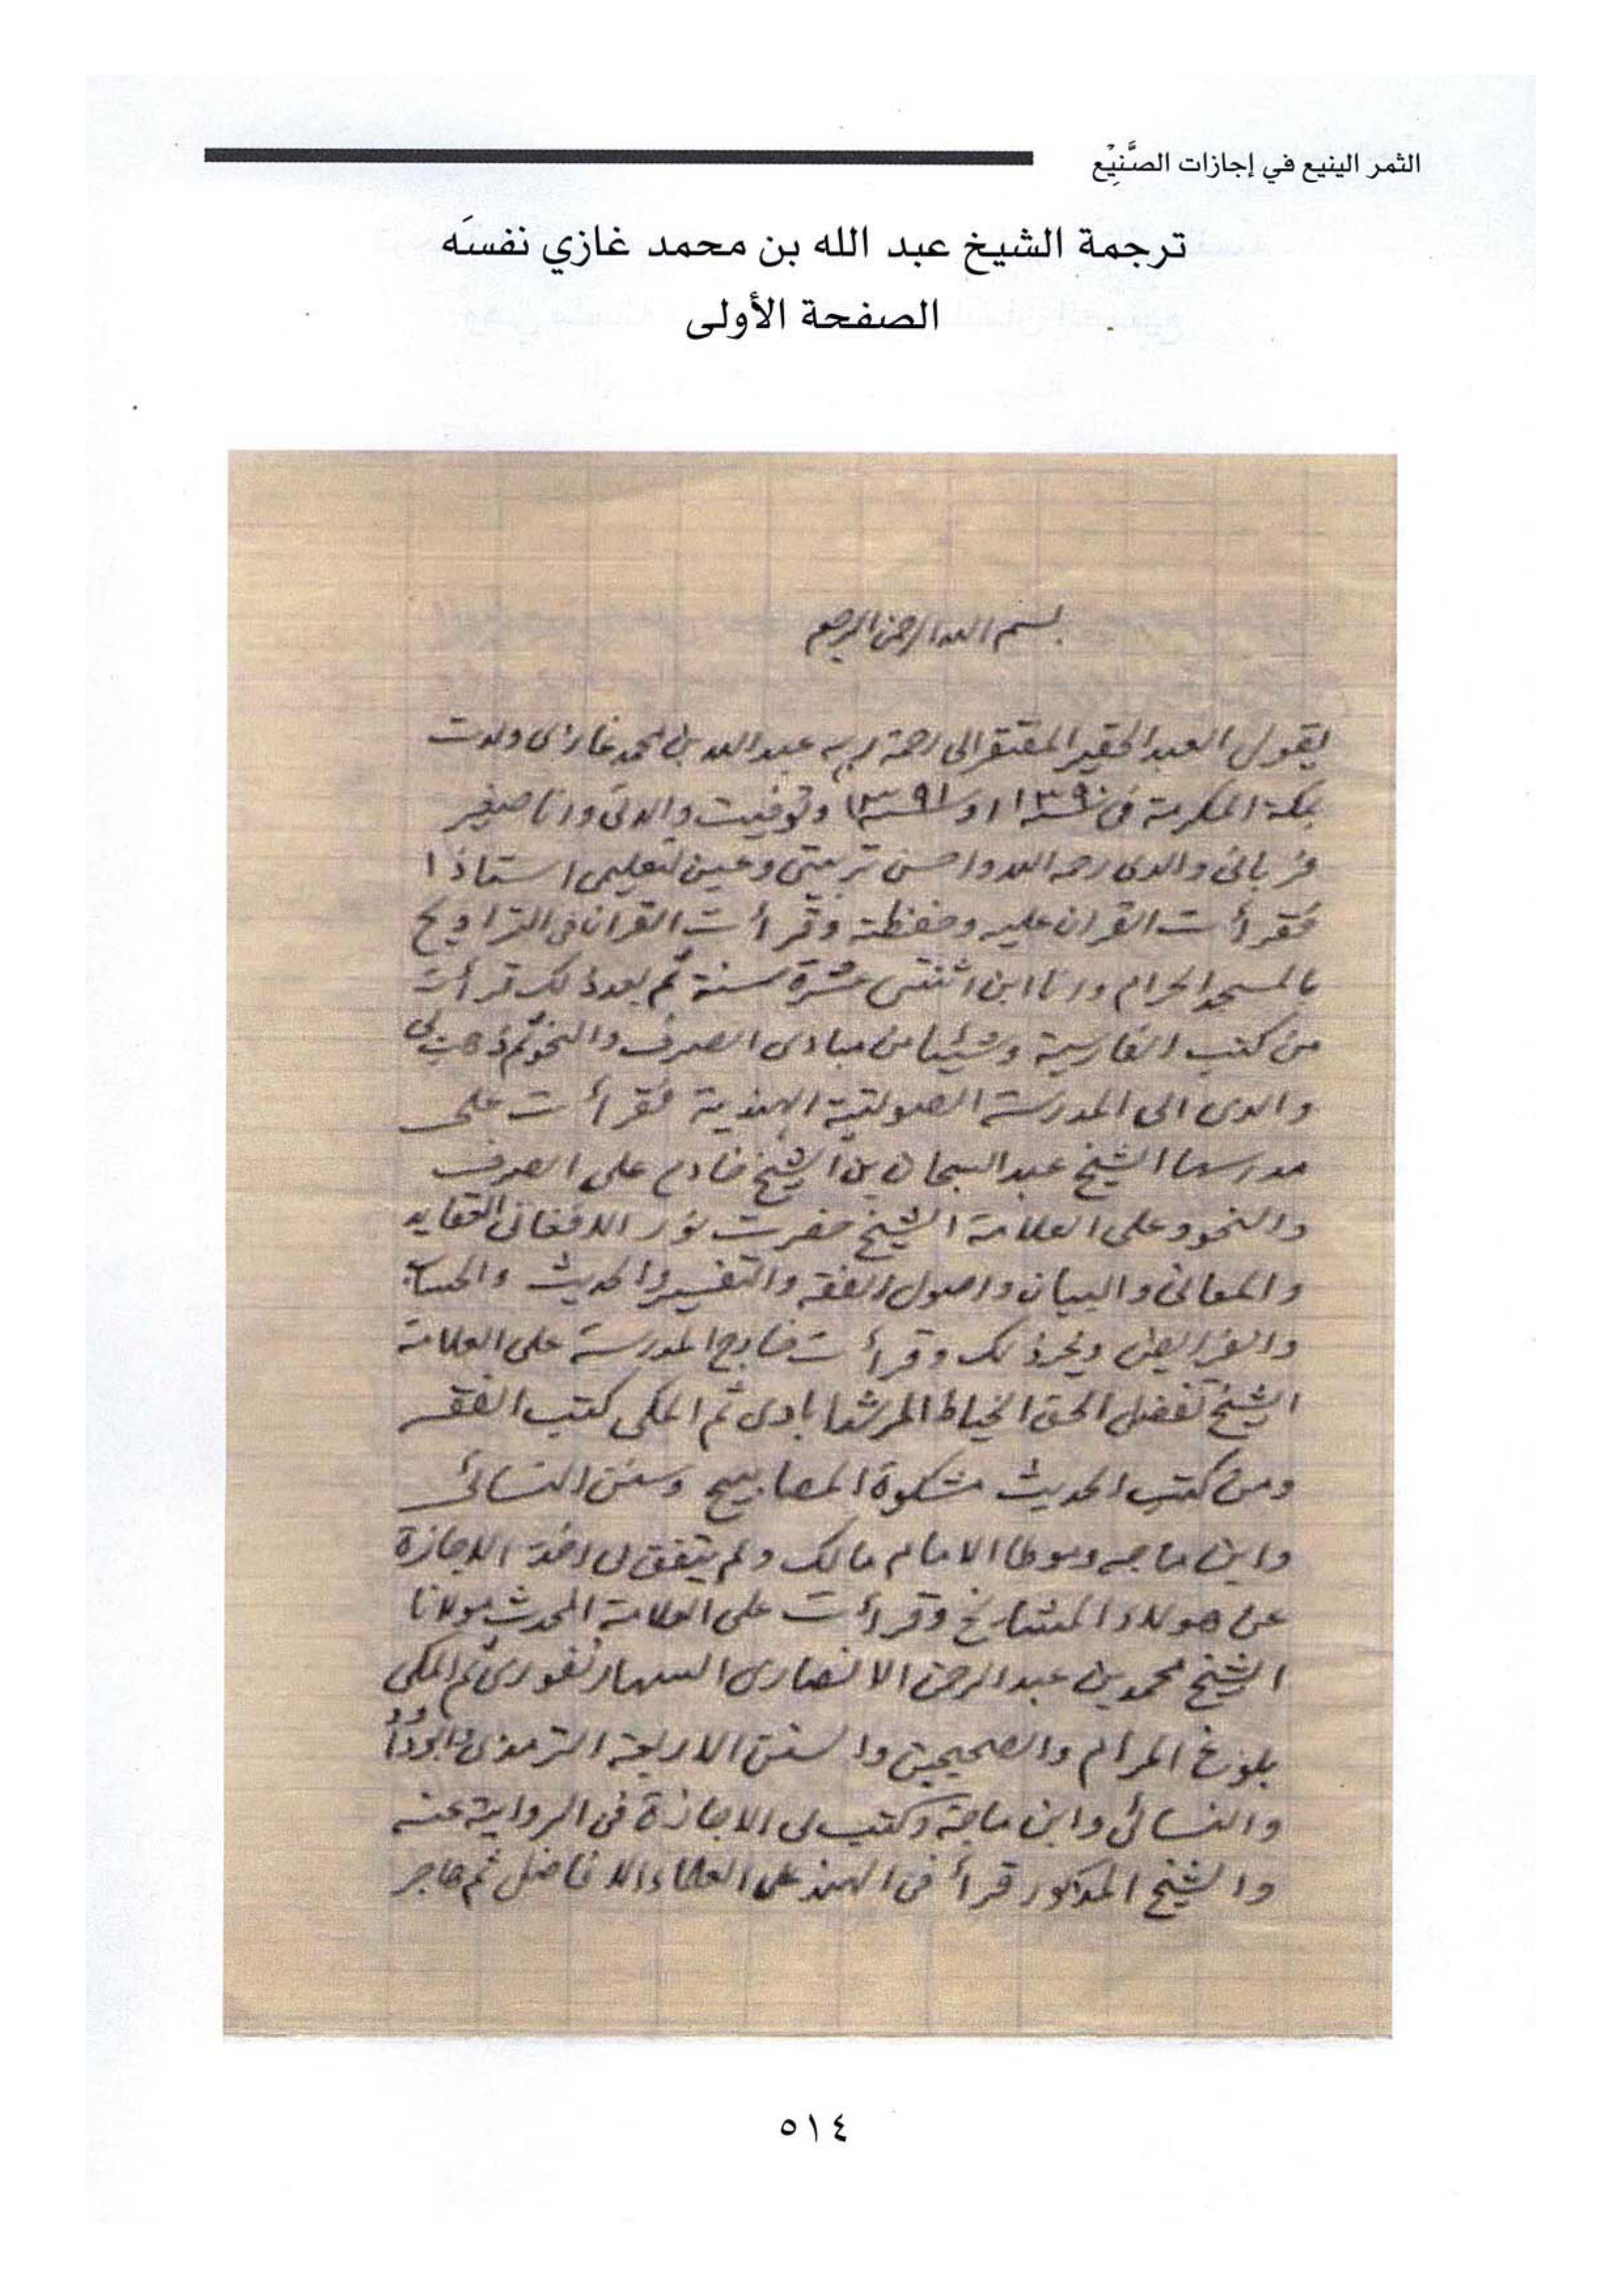 الثمر الينيع في إجازات الصَّنِيْع
ترجمة الشيخ عبد الله بن محمد غازي نفسَه
الصفحة الأولى
بسم الله الرحمن الرحيم
يقول العبد الحقير المفتقر الى رحمة ربه عبد الله بن محمد غازى ولدت
بمكة المكرمة فى او وتوفيت والدتى وانا صغير
فربانى والدى رحمه الله واحسن تربيتى وعين لتعليمى استاذا
فقرأت القران عليه وحفظته وقرأت القران فى التراويح
بالمسجد الحرام وانا ابن اثنتى عشرة سنة ثم بعد ذلك قرأت
من كتب الفارسية وشيئا من مبادى الصرف والنحو ثم ذهب بى
والدى الى المدرسة الصولتية الهندية فقرأت على
مدرسها الشيخ عبد السبحان بن الشيخ خادم على الصرف
والنحو وعلى العلامة الشيخ حضرت نور الافغانى العقايد
والمعانى والبيان واصول الفقه والتفسير والحديث والحساب
والفرايض ونحو ذلك وقرأت خارج المدرسة على العلامة
الشيخ تفضل الحق الخياط المرشدابادى ثم المكى كتب الفقه
ومن كتب الحديث مشكوة المصابيح وسنن النسائى
وابن ماجه وموطا الامام مالك ولم يتفق لى اخذ الاجازة
عن هولاء المشايخ وقرأت على العلامة المحدث مولانا
الشيخ محمد بن عبد الرحمن الانصارى السهارنفورى ثم المكى
بلوغ المرام والصحيحين والسنن الاربعة الترمذى وابوداود
والنسائى وابن ماجة وكتب لى الاجازة فى الرواية عنه
والشيخ المذكور قرأ فى الهند على العلماء الافاضل ثم هاجر
٥١٤